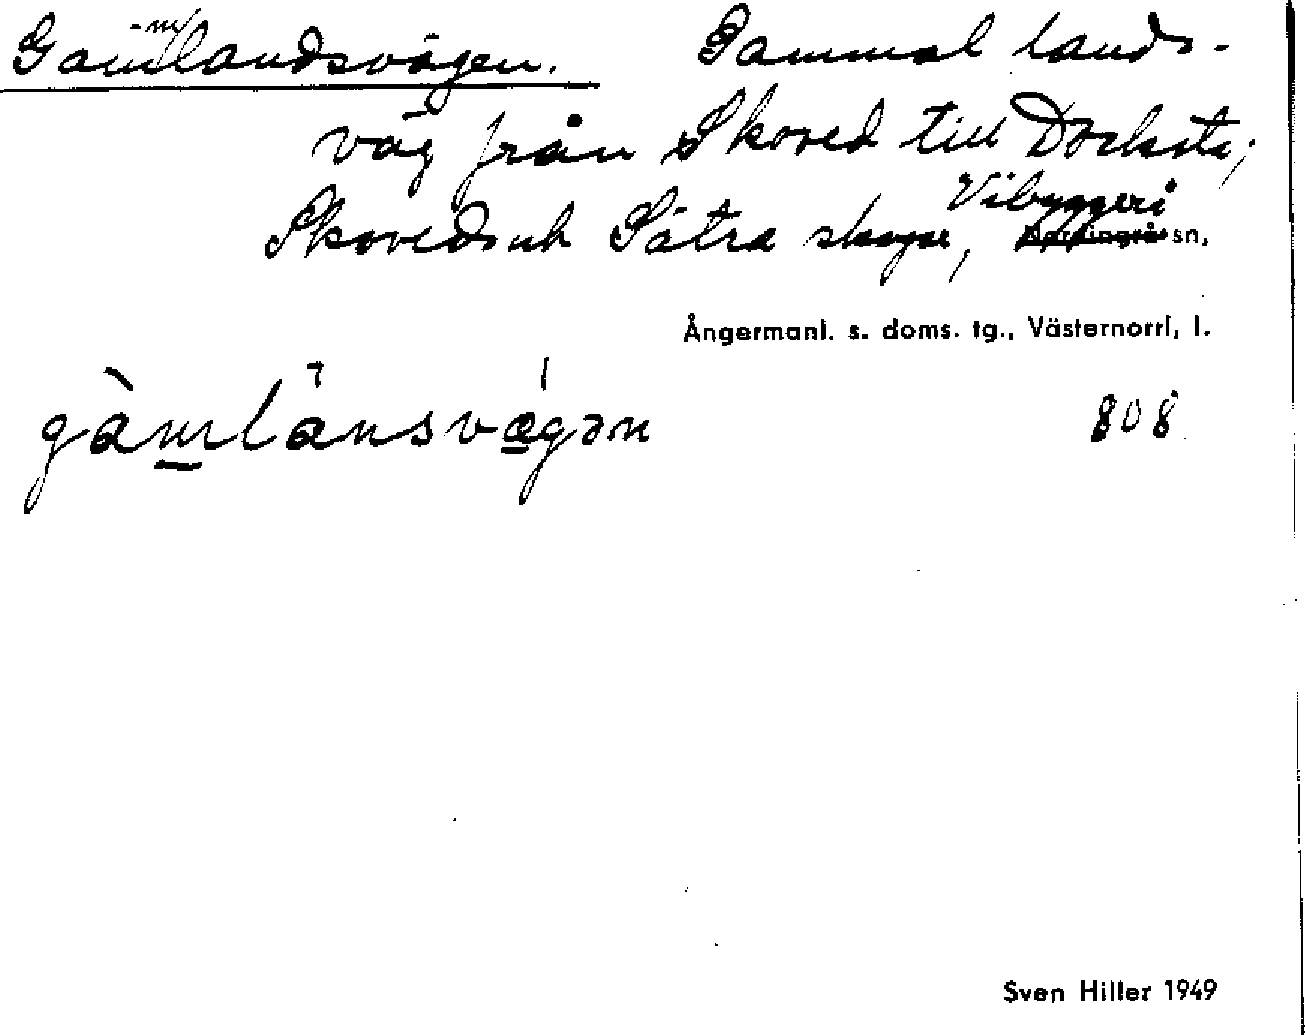 Gammlandsvägen. Gammal lands-
väg från Skoved till Docksta;
Skoveds och Sätra skogar, Vibyggerå sn,
Ångermanl. s. doms. tg., Västernorrl. l.
gàmlánsvǽgən 808
Sven Hiller 1949